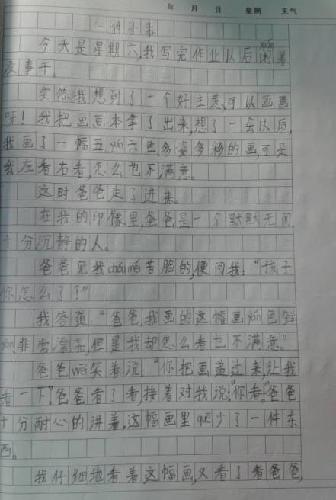 年 月 日 星期 天气
一件小事
今天是星期六,我写完作业以后闲着
没事干。
突然我想到了一个好主意,可以画画
呀!我把画本拿了出来,想了一会以后,
我画了一幅五颜六色多姿多彩的画可是
我左看右看怎么也不满意
这时爸爸走了进来
在我的印像里爸爸是一个默默无闻
十分沉静的人。
爸爸见我 苦脸的,便问我:“孩子
你怎么了?”
我答道“爸爸,我画的这幅画颜色
非常 但是我却怎么看也不满意”
爸爸 笑着说“你把画拿过来让我
看一下”爸爸看了看接着对我说“你看”爸爸
十分耐心的讲着,这幅画里缺少了一件东
西。
我仔细地看着这幅画,又看了看爸爸